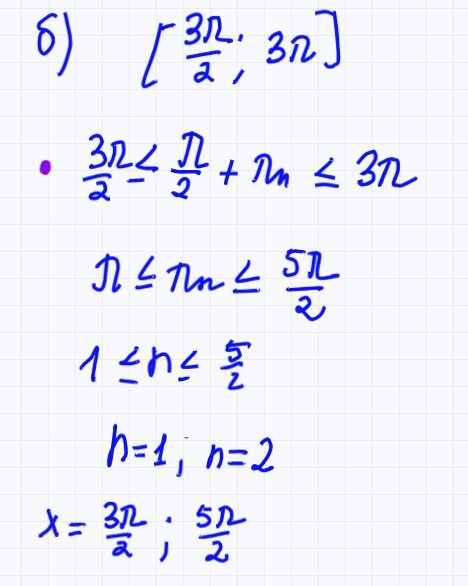 б) [3π/2; 3π]
• 3π/2 ≤ π/2 + πn ≤ 3π
π ≤ πn ≤ 5π/2
1 ≤ n ≤ 5/2
n=1; n=2
x = 3π/2 ; 5π/2